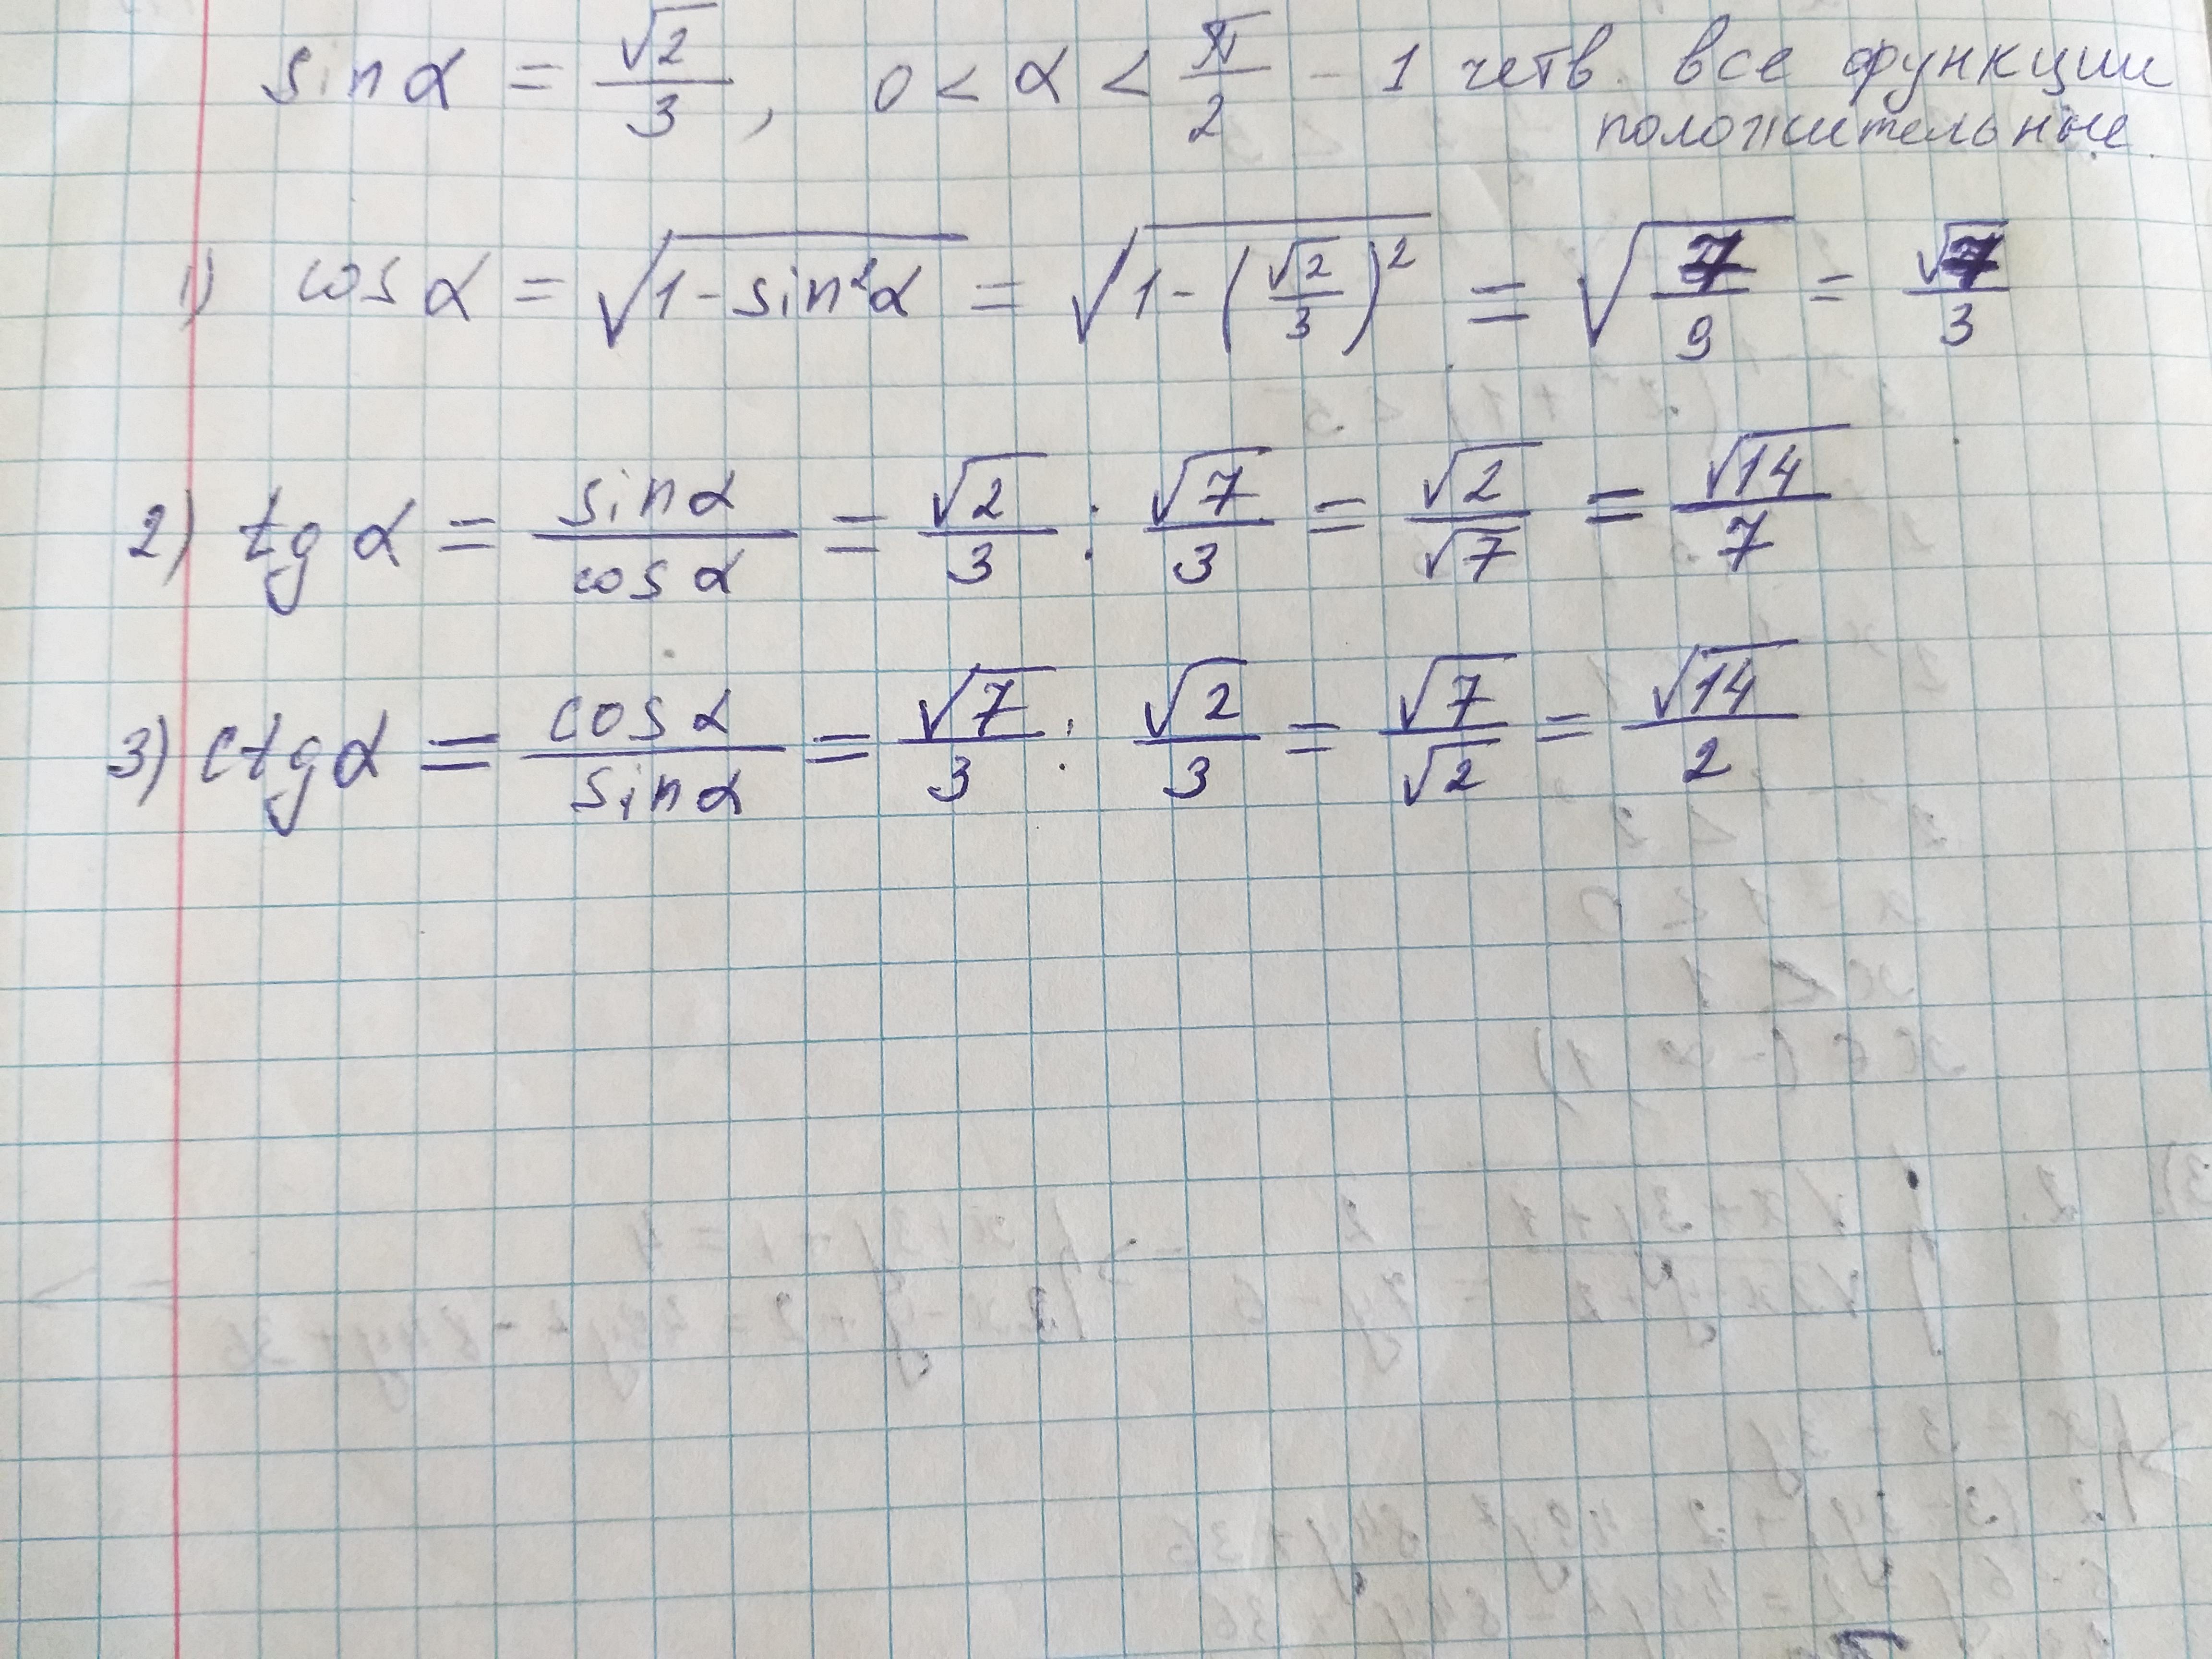 sin α = √2/3, 0 < α < π/2 - 1 четв. все функции
положительные.
1) cos α = √(1 - sin²α) = √(1 - (√2/3)²) = √(7/9) = √7/3
2) tg α = sin α/cos α = √2/3 : √7/3 = √2/√7 = √14/7
3) ctg α = cos α/sin α = √7/3 : √2/3 = √7/√2 = √14/2